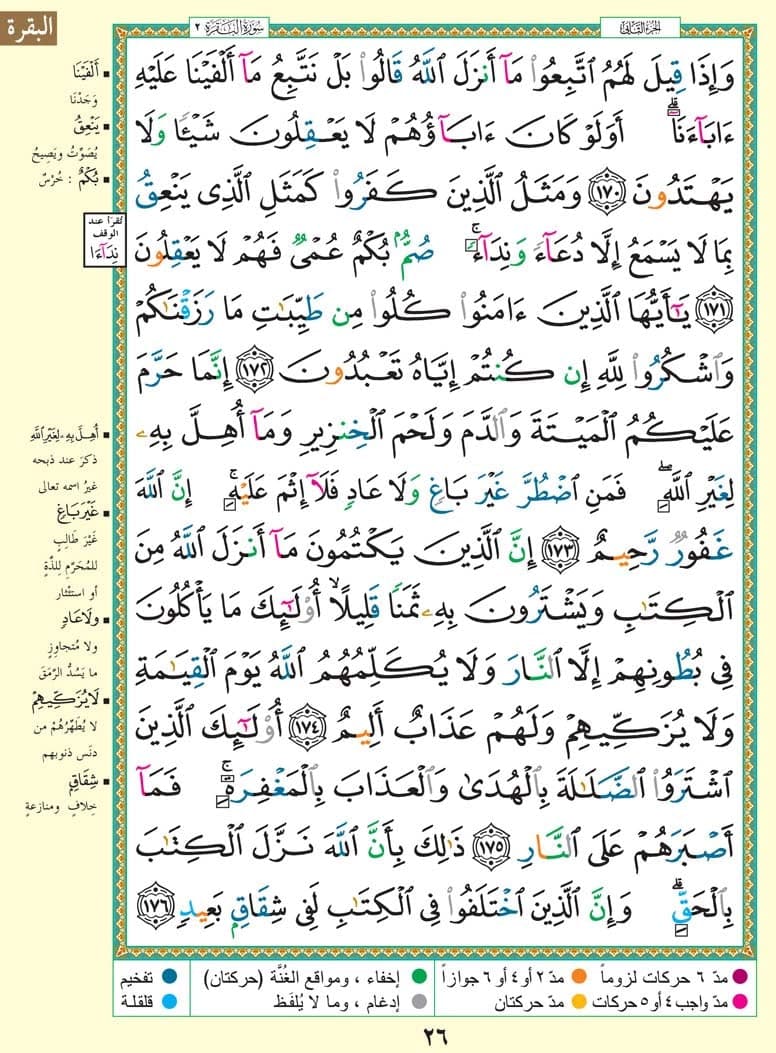 البقرة
سُورَةُ البَقَرَة ٢
الجزء الثاني
وَإِذَا قِيلَ لَهُمُ ٱتَّبِعُوا۟ مَآ أَنزَلَ ٱللَّهُ قَالُوا۟ بَلْ نَتَّبِعُ مَآ أَلْفَيْنَا عَلَيْهِ
ءَابَآءَنَآۗ أَوَلَوْ كَانَ ءَابَآؤُهُمْ لَا يَعْقِلُونَ شَيْـًٔا وَلَا
يَهْتَدُونَ ١٧٠ وَمَثَلُ ٱلَّذِينَ كَفَرُوا۟ كَمَثَلِ ٱلَّذِى يَنْعِقُ
بِمَا لَا يَسْمَعُ إِلَّا دُعَآءً وَنِدَآءًۚ صُمٌّۢ بُكْمٌ عُمْىٌ فَهُمْ لَا يَعْقِلُونَ
١٧١ يَـٰٓأَيُّهَا ٱلَّذِينَ ءَامَنُوا۟ كُلُوا۟ مِن طَيِّبَـٰتِ مَا رَزَقْنَـٰكُمْ
وَٱشْكُرُوا۟ لِلَّهِ إِن كُنتُمْ إِيَّاهُ تَعْبُدُونَ ١٧٢ إِنَّمَا حَرَّمَ
عَلَيْكُمُ ٱلْمَيْتَةَ وَٱلدَّمَ وَلَحْمَ ٱلْخِنزِيرِ وَمَآ أُهِلَّ بِهِۦ
لِغَيْرِ ٱللَّهِۖ فَمَنِ ٱضْطُرَّ غَيْرَ بَاغٍ وَلَا عَادٍ فَلَآ إِثْمَ عَلَيْهِۚ إِنَّ ٱللَّهَ
غَفُورٌ رَّحِيمٌ ١٧٣ إِنَّ ٱلَّذِينَ يَكْتُمُونَ مَآ أَنزَلَ ٱللَّهُ مِنَ
ٱلْكِتَـٰبِ وَيَشْتَرُونَ بِهِۦ ثَمَنًا قَلِيلًاۙ أُو۟لَـٰٓئِكَ مَا يَأْكُلُونَ
فِى بُطُونِهِمْ إِلَّا ٱلنَّارَ وَلَا يُكَلِّمُهُمُ ٱللَّهُ يَوْمَ ٱلْقِيَـٰمَةِ
وَلَا يُزَكِّيهِمْ وَلَهُمْ عَذَابٌ أَلِيمٌ ١٧٤ أُو۟لَـٰٓئِكَ ٱلَّذِينَ
ٱشْتَرَوُا۟ ٱلضَّلَـٰلَةَ بِٱلْهُدَىٰ وَٱلْعَذَابَ بِٱلْمَغْفِرَةِۚ فَمَآ
أَصْبَرَهُمْ عَلَى ٱلنَّارِ ١٧٥ ذَٰلِكَ بِأَنَّ ٱللَّهَ نَزَّلَ ٱلْكِتَـٰبَ
بِٱلْحَقِّۗ وَإِنَّ ٱلَّذِينَ ٱخْتَلَفُوا۟ فِى ٱلْكِتَـٰبِ لَفِى شِقَاقٍۭ بَعِيدٍ ١٧٦
أَلْفَيْنَا
وَجَدْنَا
يَنْعِقُ
يُصَوِّتُ ويَصِيحُ
بُكْمٌ : خُرْسٌ
تُقرأ عند
الوقف
نِدَآءَا
أُهِلَّ بِهِۦ لِغَيْرِ اللَّهِ
ذكرَ عند ذبحه
غيرُ اسمه تعالى
غَيْرَ بَاغٍ
غَيْرَ طَالِبٍ
للمُحَرَّمِ لِلذَّةٍ
أو استئثار
وَلَا عَادٍ
ولا مُتجاوِزٍ
ما يَسُدُّ الرَّمَقَ
لَا يُزَكِّيهِمْ
لا يُطَهِّرُهُمْ من
دنَسِ ذنوبهم
شِقَاقٍ
خِلافٍ ومنازعةٍ
مدّ ٦ حركات لزوماً
مدّ ٢ أو ٤ أو ٦ جوازاً
إخفاء ، ومواقع الغُنَّة (حركتان)
تفخيم
مدّ واجب ٤ أو ٥ حركات
مدّ حركتان
إدغام ، وما لا يُلفَظ
قلقلة
٢٦